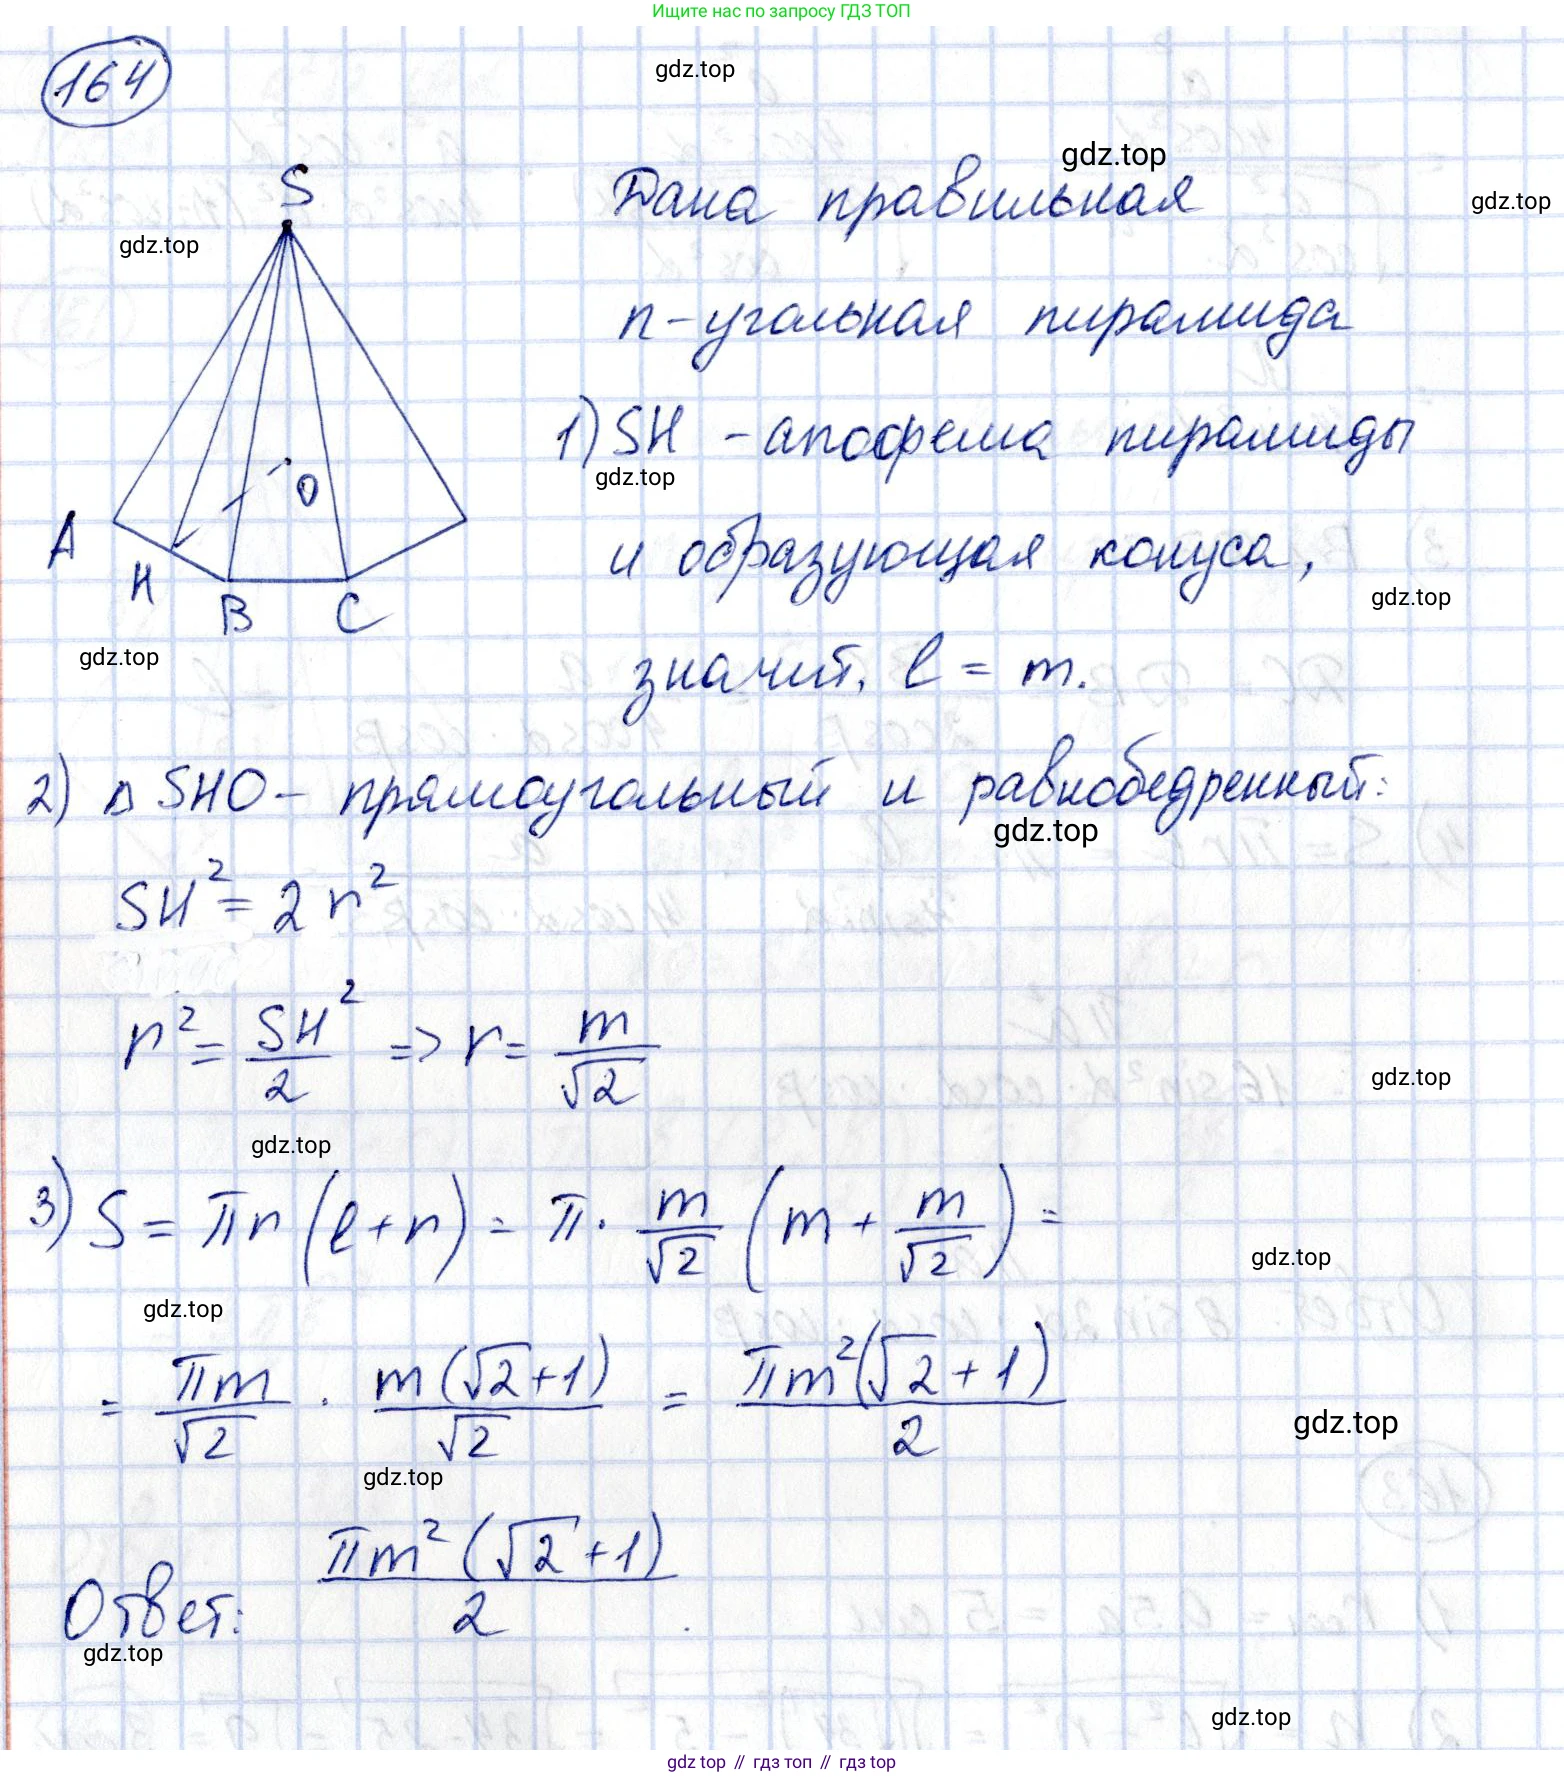 Ищите нас по запросу ГДЗ ТОП
164
gdz.top
gdz.top
S
Дана правильная
gdz.top
gdz.top
n-угольная пирамида
1) SH - апофема пирамиды
gdz.top
O
A
H
B
C
и образующая конуса,
gdz.top
gdz.top
значит, l = m.
2) △ SHO - прямоугольный и равнобедренный:
gdz.top
SH² = 2r²
r² = SH²/2 => r = m/√2
gdz.top
gdz.top
3) S = πr(l+r) = π · m/√2 (m + m/√2) =
gdz.top
gdz.top
= πm/√2 · m(√2+1)/√2 = πm²(√2+1)/2
gdz.top
gdz.top
Ответ: πm²(√2+1)/2.
gdz.top
gdz.top
gdz.top // гдз топ // гдз.top